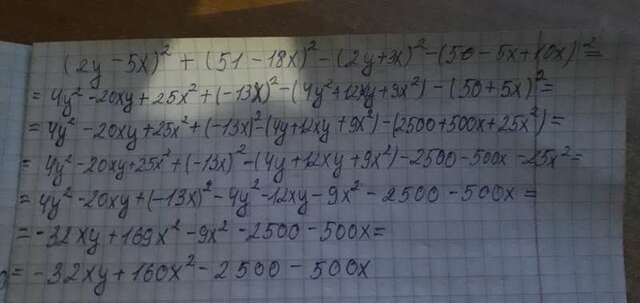 (2y - 5x)² + (51 - 18x)² - (2y + 3x)² - (50 - 5x + 10x)² =
= 4y² - 20xy + 25x² + (-13x)² - (4y² + 12xy + 3x²) - (50 + 5x)² =
= 4y² - 20xy + 25x² + (-13x)² - (4y + 12xy + 9x²) - (2500 + 500x + 25x²) =
= 4y² - 20xy + 25x² + (-13x)² - (4y + 12xy + 9x²) - 2500 - 500x - 25x² =
= 4y² - 20xy + (-13x)² - 4y² - 12xy - 9x² - 2500 - 500x =
= -32xy + 169x² - 9x² - 2500 - 500x =
= -32xy + 160x² - 2500 - 500x